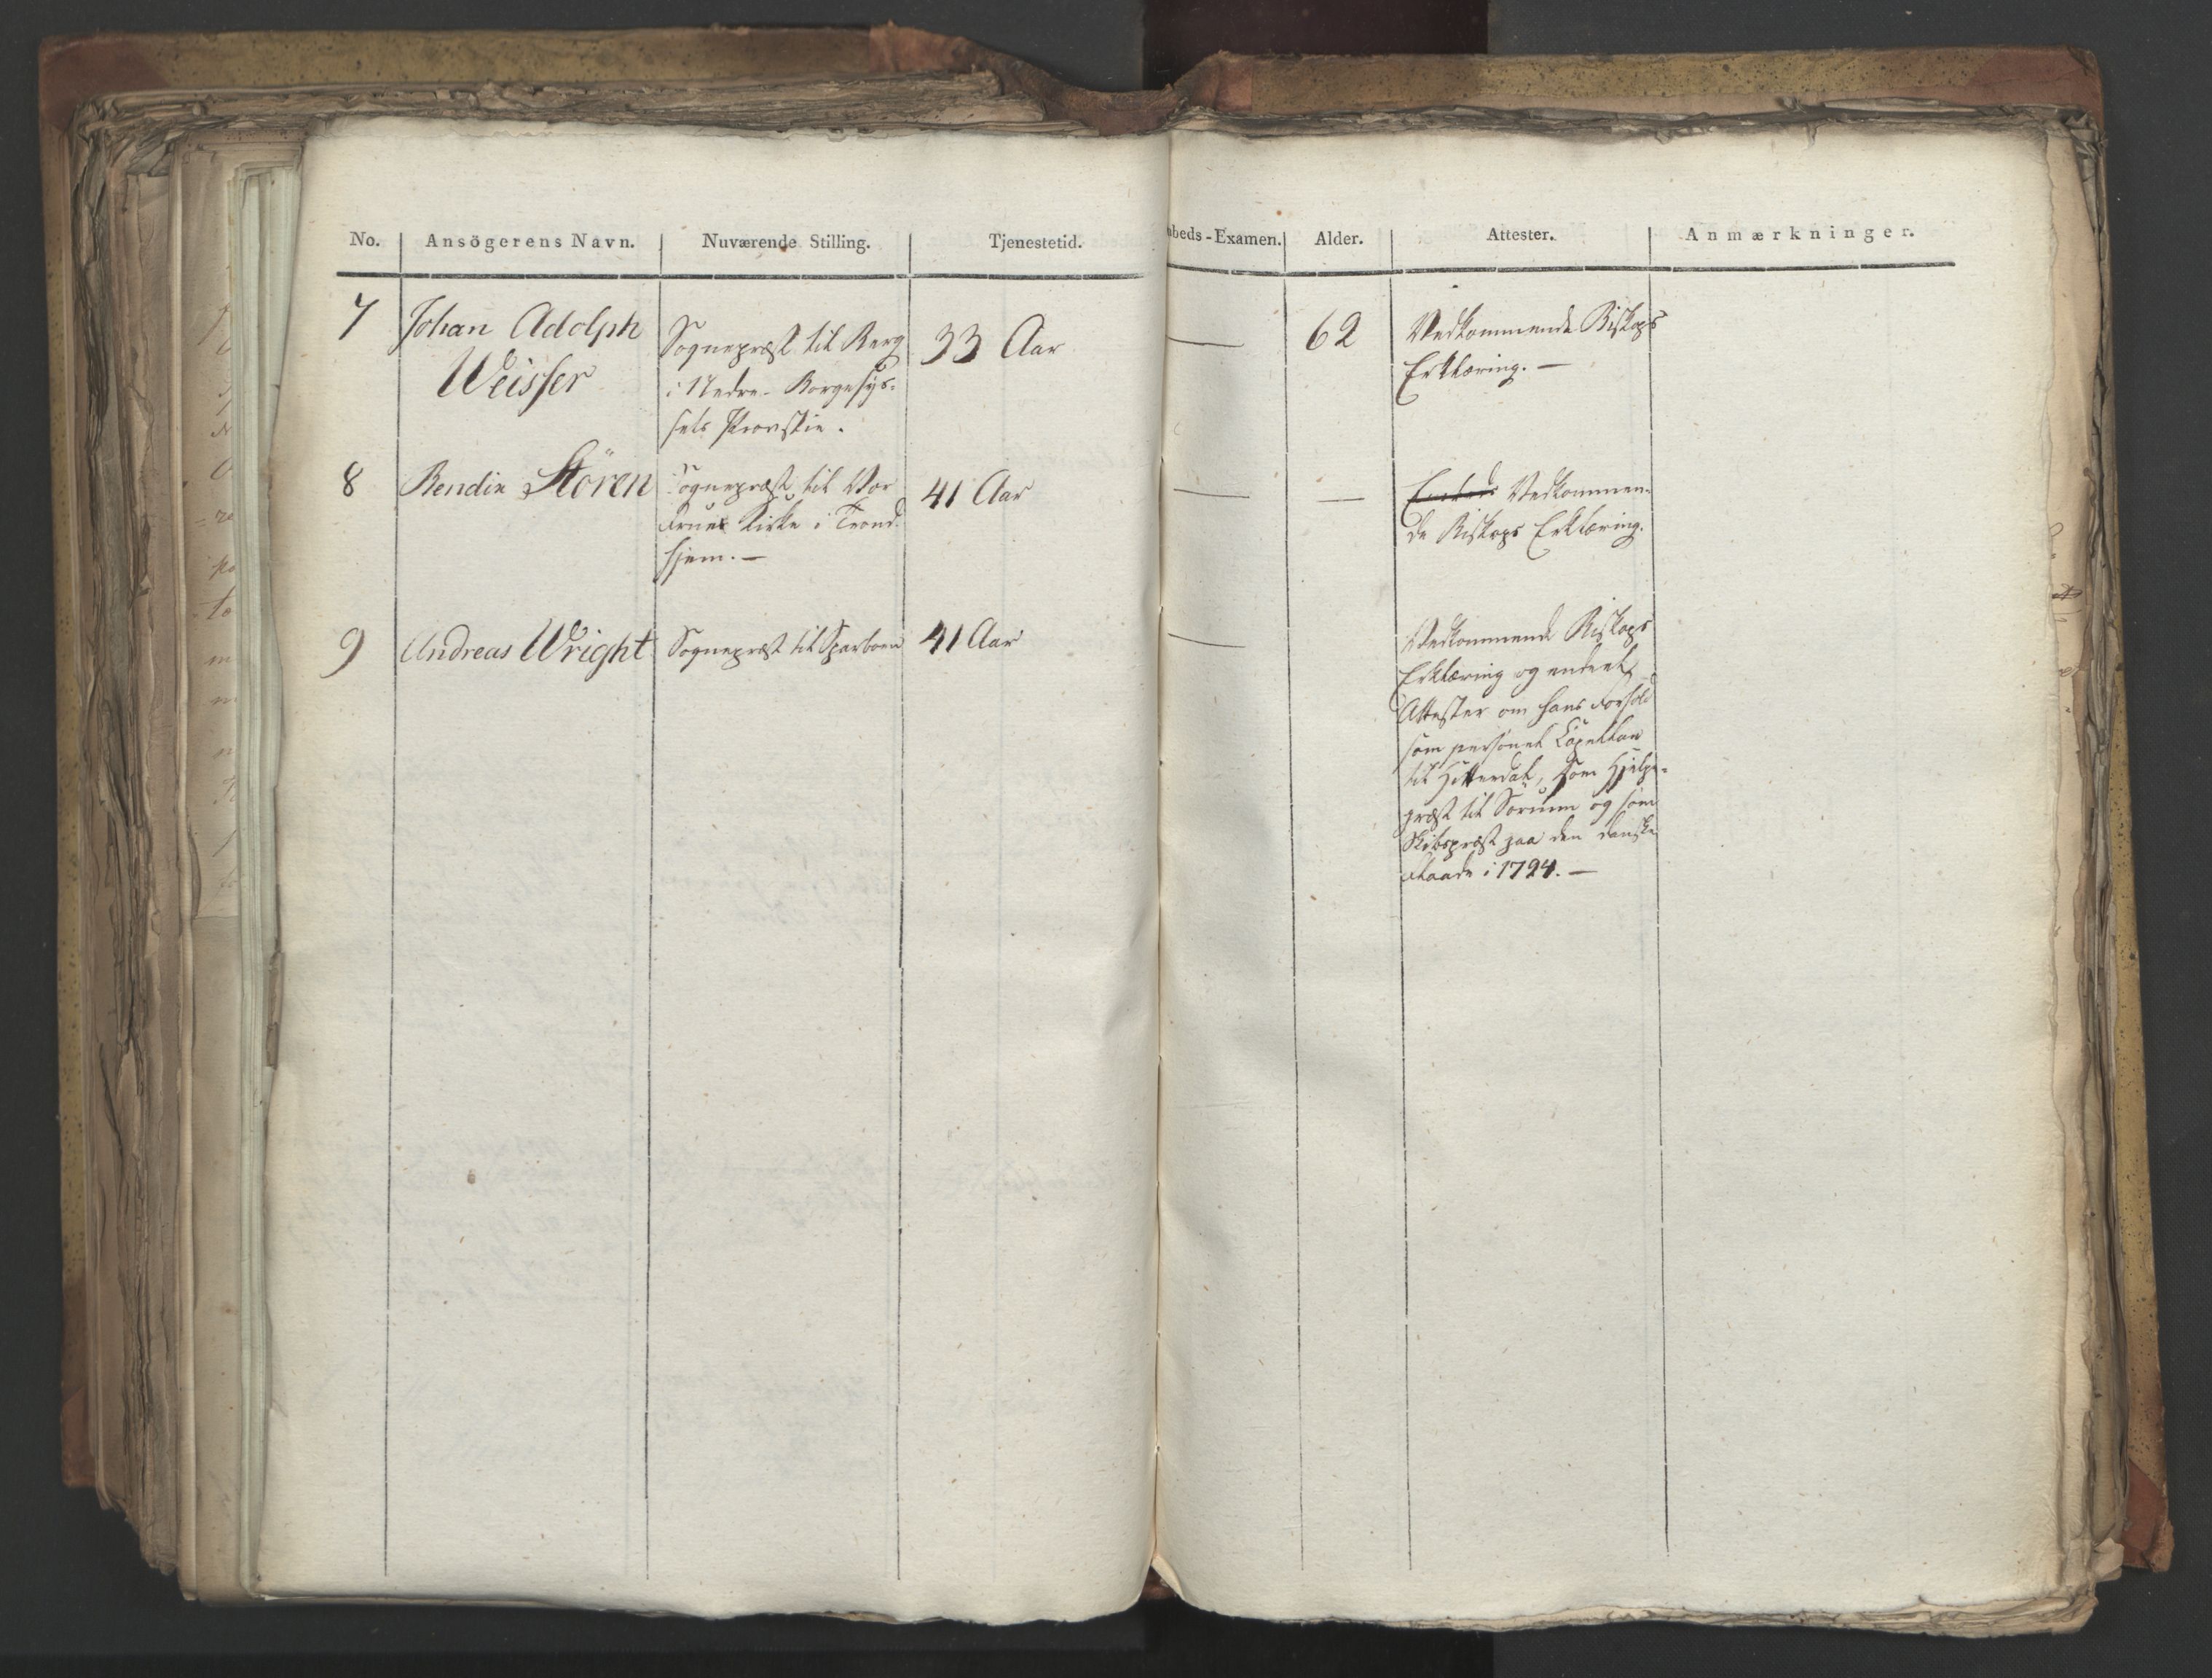 No. Ansögerens Navn. Nuværende Stilling. Tjenestetid.
7 Johan Adolph
Weisser
Sognepræst til Berg
i Nedre-Borgesys-
sels Provstie.
33 Aar
8 Bendix Stören
Sognepræst til Vor
Frue Kirke i Trond-
hjem. —
41 Aar
9 Andreas Wright
Sognepræst til Sparboen
41 Aar
beds-Examen. Alder. Attester. Anmærkninger.
— 62
Vedkommende Biskops
Erklæring. —
— —
Vedkommen-
de Biskops Erklæring.
—
Vedkommende Biskops
Erklæring og endeel
Attester om hans Forhold
som personel Capellan
til Hitterdal, som Hjelpe-
præst til Sörum og som
Skibspræst paa den danske
Flaade i 1794. —